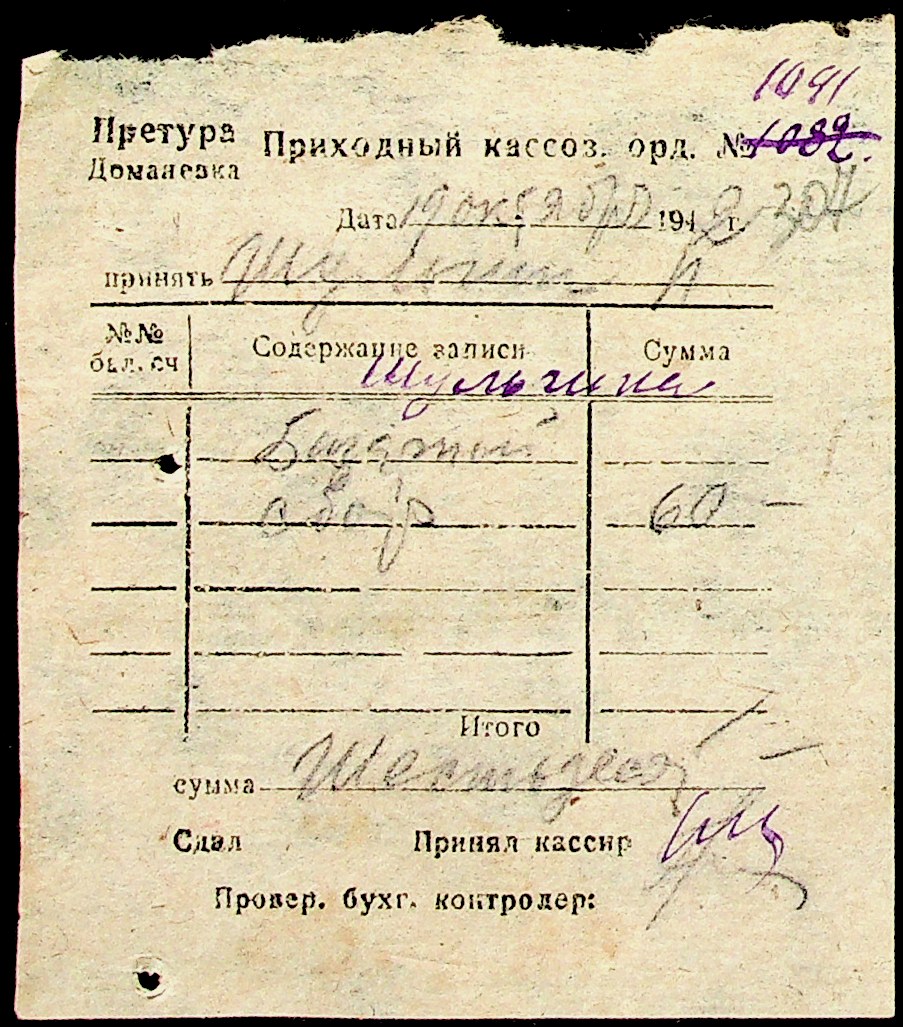 1041
Претура Приходный кассов. орд. № 1082.
Доманевка
Дата 19 октября 1942 г. 304
принять
№№ бал. сч Содержание записи Сумма
Шульгина
сбор 60 —
Итого
сумма Шестьдесят
Сдал Принял кассир
Провер. бухг. контролер: